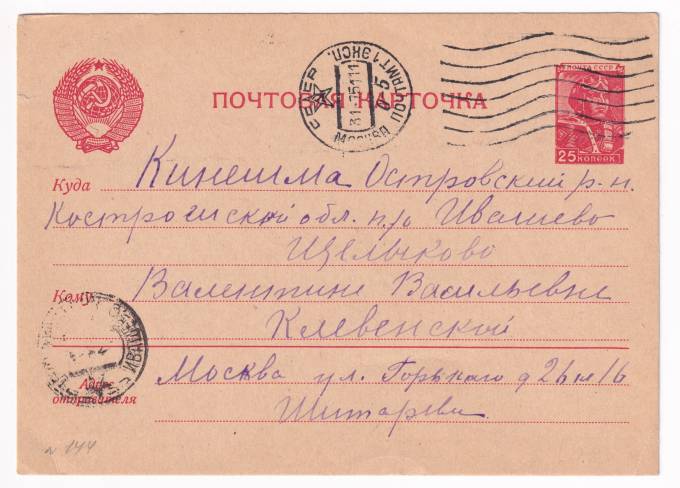 ПОЧТОВАЯ КАРТОЧКА
ПОЧТА СССР
25 КОПЕЕК
МОСКВА
ПОЧТАМТ 1 ЭКСП.
Куда Кинешма Островский р-н.
Костромской обл. п/о Ивашево
Щелыково
Кому Валентине Васильевне
Клевенской
Адрес отправителя Москва ул. Горького
Шитарева
N 144